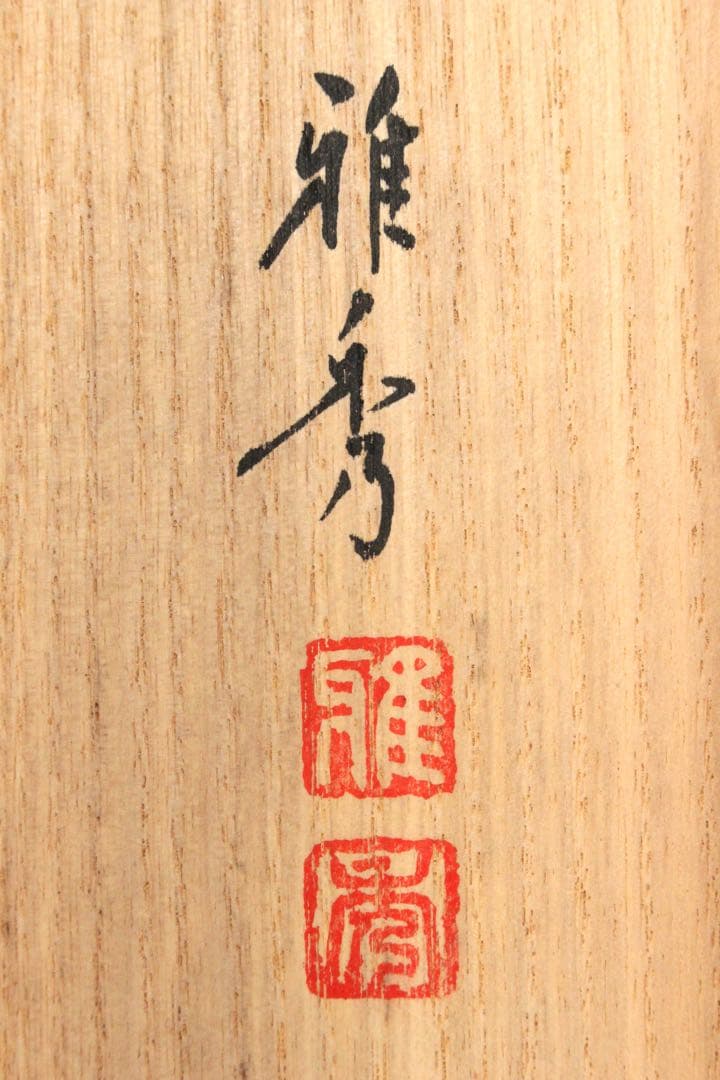 雅秀
雅
秀